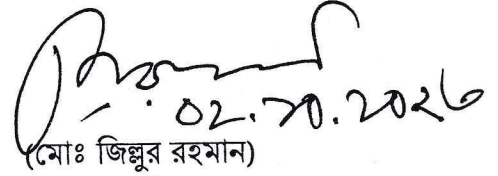 ০২.১০.২০২৩
(মোঃ জিল্লুর রহমান)